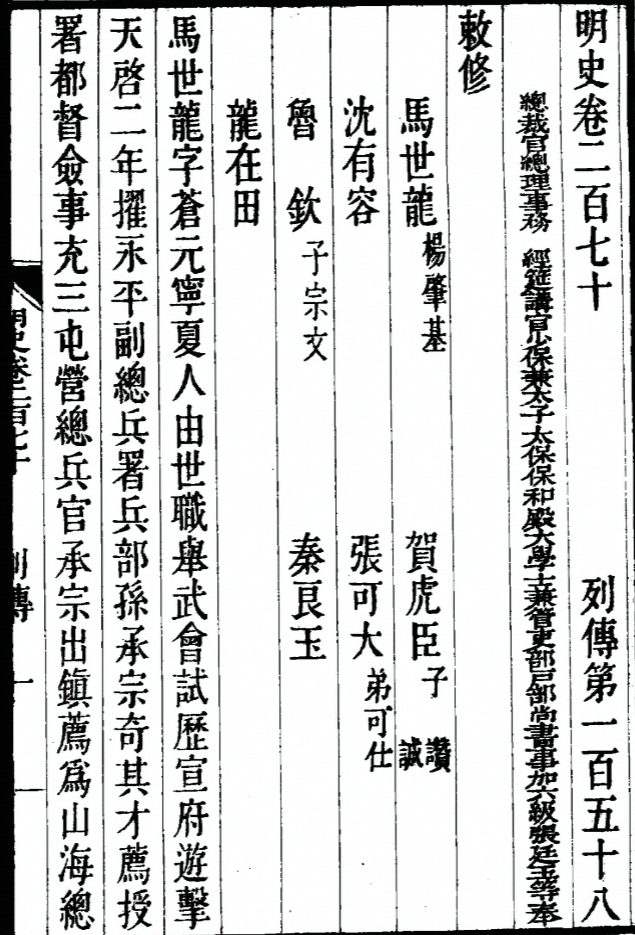 明史卷二百七十 列傳第一百五十八
總裁官總理事務 經筵講官少保兼太子太保保和殿大學士兼管吏部戶部尚書事加六級張廷玉等奉
敕修
馬世龍 楊肇基 賀虎臣 子讚 誠
沈有容 張可大 弟可仕
魯欽 子宗文 秦良玉
龍在田
馬世龍字蒼元寧夏人由世職舉武會試歷宣府遊擊
天啓二年擢永平副總兵署兵部孫承宗奇其才薦授
署都督僉事充三屯營總兵官承宗出鎮薦爲山海總
明史卷二百七十 列傳 一